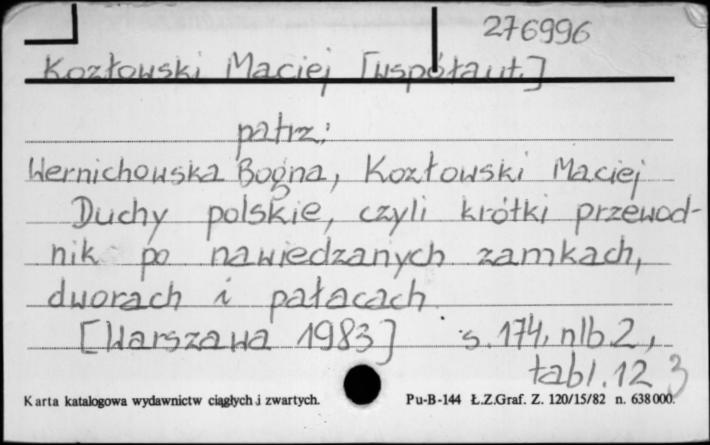 276996
Kozłowski Maciej [współaut.]
patrz:
Wernichowska Bogna, Kozłowski Maciej
Duchy polskie, czyli krótki przewod-
nik po nawiedzanych zamkach,
dworach i pałacach
[Warszawa 1983] s. 174, nlb. 2,
tabl. 12 3
Karta katalogowa wydawnictw ciągłych i zwartych. Pu-B-144 Ł.Z.Graf. Z. 120/15/82 n. 638000.